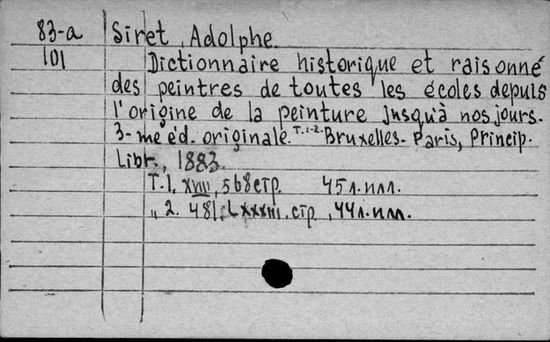 83-a Siret, Adolphe.
101 Dictionnaire historique et raisonné
des peintres de toutes les écoles depuis
l'origine de la peinture jusqu'à nos jours.
3-me éd. originale. T.1-2. Bruxelles-Paris, Princip.
Libr., 1883.
T.1. XVIII, 568 стр. 45 л. илл.
„ 2. 481, LXXXIII. стр., 44 л. илл.